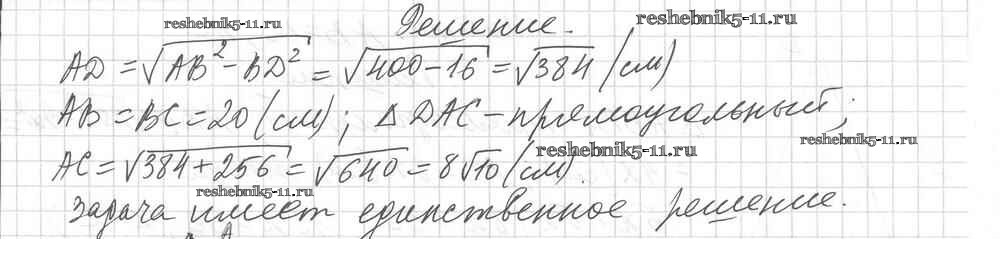 reshebnik5-11.ru Решение. reshebnik5-11.ru
AD = √(AB² - BD²) = √(400-16) = √384 (см)
AB = BC = 20 (см); Δ DAC - прямоугольный;
reshebnik5-11.ru
AC = √(384+256) = √640 = 8√10 (см).
reshebnik5-11.ru
reshebnik5-11.ru
Задача имеет единственное решение.
reshebnik5-11.ru